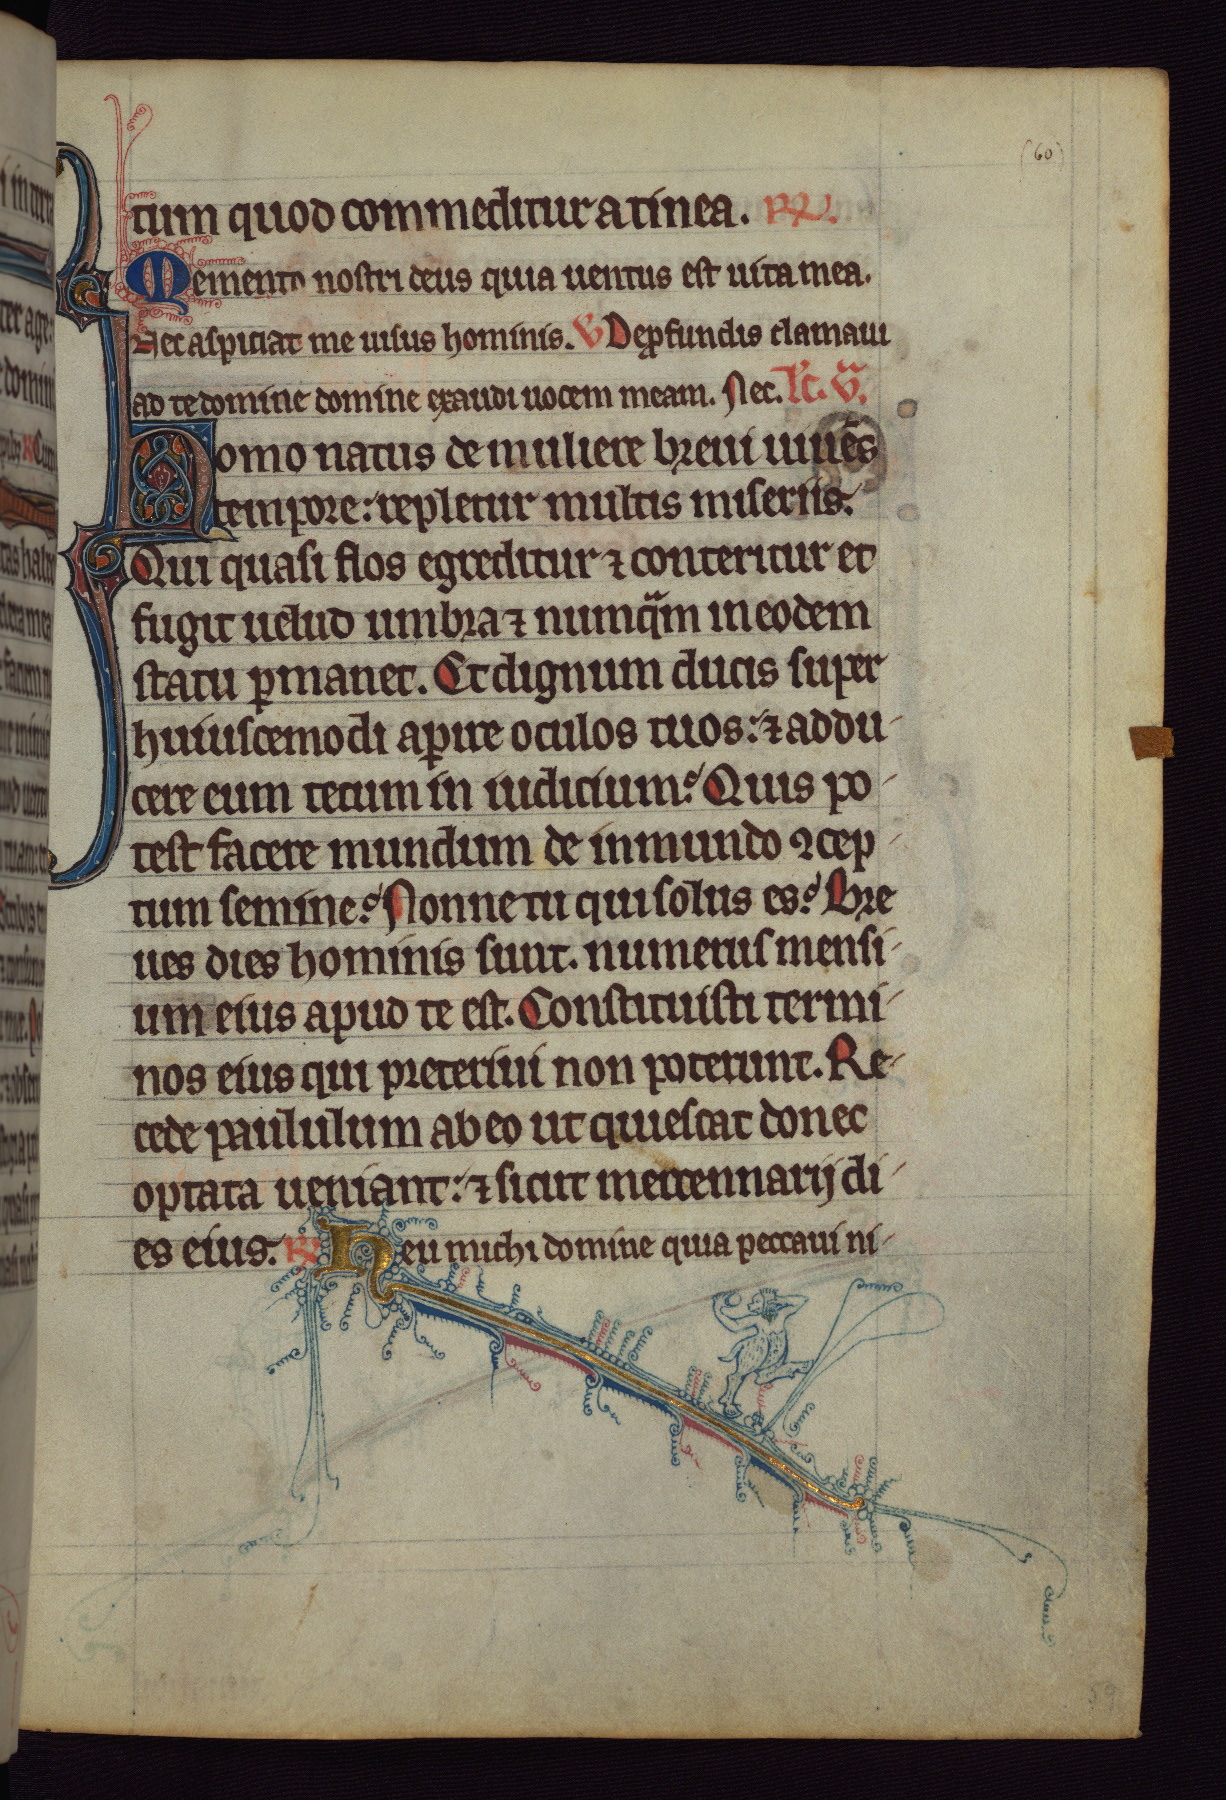 (60)
tum quod commeditur a tinea. R.
Memento nostri deus quia uentus est uita mea.
Nec aspiciat me uisus hominis. V Deꝓfundis clamaui
ad te domine domine exaudi uocem meam. Nec. Lc̄. v̄.
Homo natus de muliere breui uiuēs
tempore: repletur multis miseriis.
Qui quasi flos egreditur ⁊ conteritur et
fugit uelud umbra ⁊ numqᵃm in eodem
statu ꝑmanet. Et dignum ducis super
huiuscemodi aꝑire oculos tuos: ⁊ addu-
cere eum tecum in iudicium? Quis po-
test facere mundum de inmundo ꝯcep-
tum semine? Nonne tu qui solus es? Bre
ues dies hominis sunt. numerus mensi-
um eius apud te est. Constituisti termi-
nos eius qui preteriui non poterunt. Re-
cede paululum ab eo ut quiescat donec
optata ueniant: ⁊ sicut mercennarij di-
es eius. R. Heu michi domine quia peccaui ni-
59